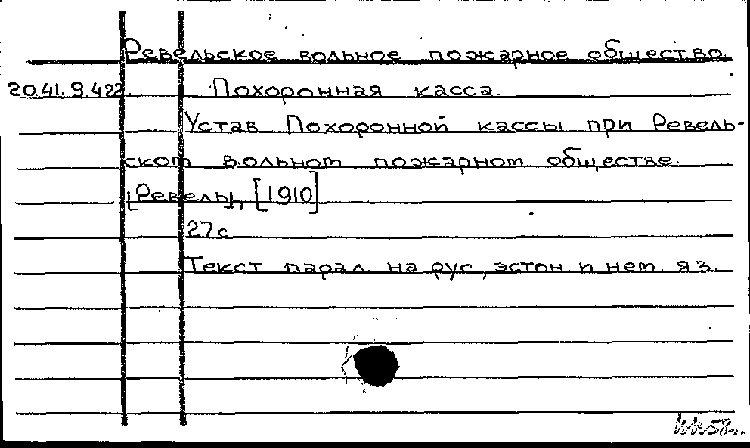 Ревельское вольное пожарное общество.
20.41.9.422. Похоронная касса.
Устав Похоронной кассы при Ревель-
ском вольном пожарном обществе.
[Ревель], [1910]
27с
Текст парал. на рус., эстон и нем. яз.